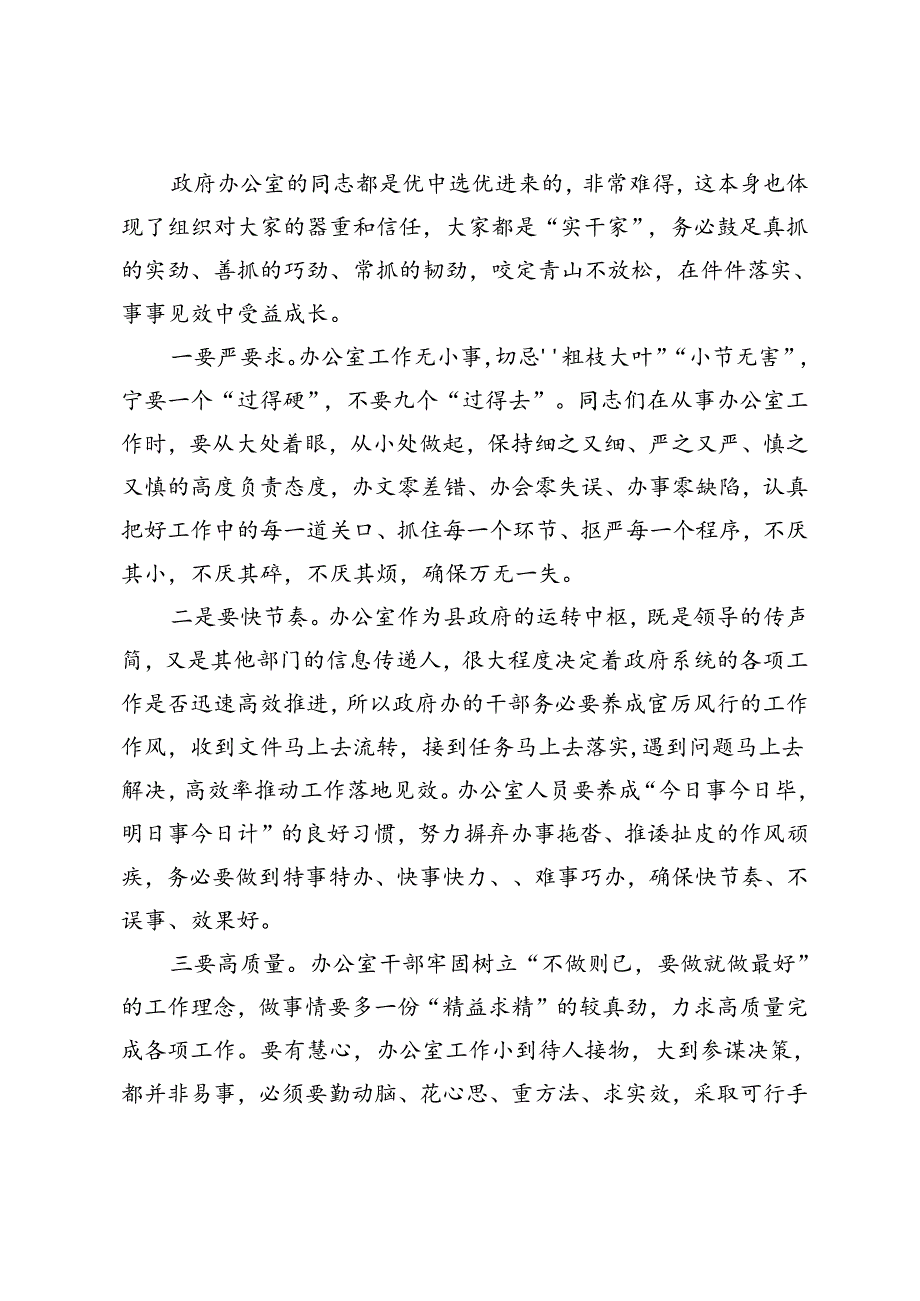 政府办公室的同志都是优中选优进来的，非常难得，这本身也体
现了组织对大家的器重和信任，大家都是“实干家”，务必鼓足真抓
的实劲、善抓的巧劲、常抓的韧劲，咬定青山不放松，在件件落实、
事事见效中受益成长。
一要严要求。办公室工作无小事，切忌''粗枝大叶”“小节无害”，
宁要一个“过得硬”，不要九个“过得去”。同志们在从事办公室工
作时，要从大处着眼，从小处做起，保持细之又细、严之又严、慎之
又慎的高度负责态度，办文零差错、办会零失误、办事零缺陷，认真
把好工作中的每一道关口、抓住每一个环节、抠严每一个程序，不厌
其小，不厌其碎，不厌其烦，确保万无一失。
二是要快节奏。办公室作为县政府的运转中枢，既是领导的传声
简，又是其他部门的信息传递人，很大程度决定着政府系统的各项工
作是否迅速高效推进，所以政府办的干部务必要养成宦厉风行的工作
作风，收到文件马上去流转，接到任务马上去落实，遇到问题马上去
解决，高效率推动工作落地见效。办公室人员要养成“今日事今日毕，
明日事今日计”的良好习惯，努力摒弃办事拖沓、推诿扯皮的作风顽
疾，务必要做到特事特办、快事快力、、难事巧办，确保快节奏、不
误事、效果好。
三要高质量。办公室干部牢固树立“不做则已，要做就做最好”
的工作理念，做事情要多一份“精益求精”的较真劲，力求高质量完
成各项工作。要有慧心，办公室工作小到待人接物，大到参谋决策，
都并非易事，必须要勤动脑、花心思、重方法、求实效，采取可行手